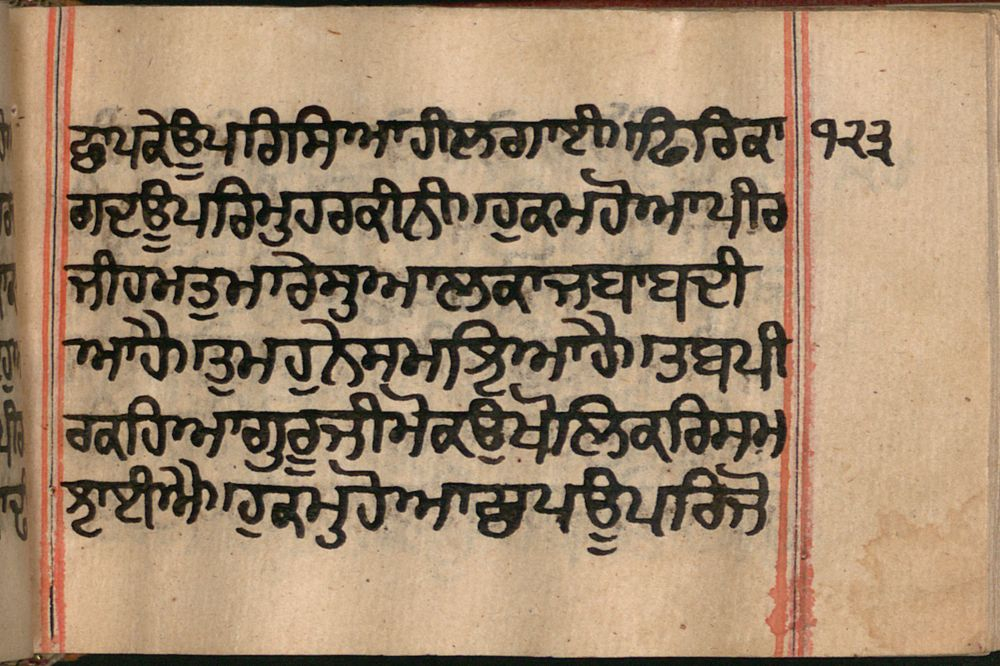 ਛਾਪਕੇਊਪਰਿਸਿਆਹੀਲਗਾਈ।ਫਿਰਿਕਾ ੧੨੩
ਗਦਊਪਰਿਮੁਹਰਕੀਨੀ।ਹੁਕਮਹੋਆਪੀਰ
ਜੀਹਮਤੁਮਾਰੇਸੁਆਲਕਾਜਬਾਬਦੀ
ਆਹੈ।ਤੁਮਹੁਨੇਸਮਝਿਆਹੈ।ਤਬਪੀ
ਰਕਹਿਆਗੁਰੂਜੀਮੋਕਉਖੋਲਿਕਰਿਸਮ
ਝਾਈਐ।ਹੁਕਮੁਹੋਆਛਾਪਊਪਰਿਜੋ